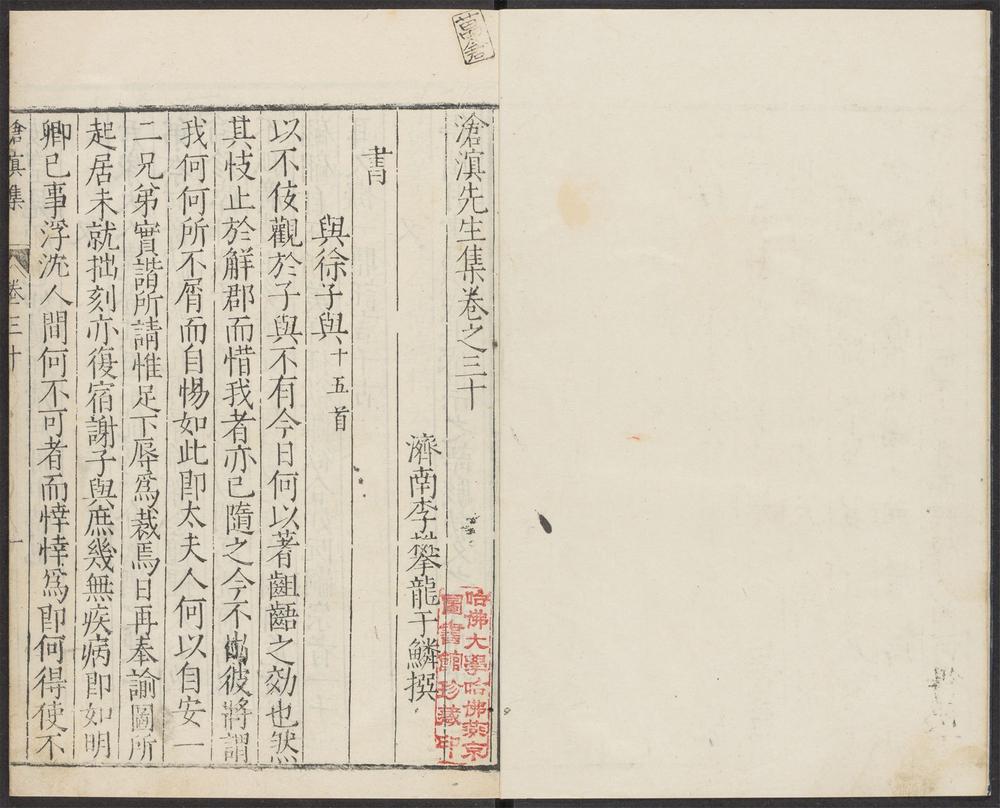 滄溟先生集卷之三十
濟南李攀龍于鱗撰
書
與徐子與十五首
以不佞觀於子與不有今日何以著齟齬之効也然
其忮止於解郡而惜我者亦已隨之今不彼將謂
我何何所不屑而自惕如此即太夫人何以自安一
二兄弟實諧所請惟足下辱爲裁焉日再奉諭圖所
起居未就拙刻亦復宿謝子與庶幾無疾病即如明
卿已事浮沈人間何不可者而悻悻爲即何得使不
滄溟集 卷三十 一
哈佛大學哈佛燕京
圖書館珍藏印